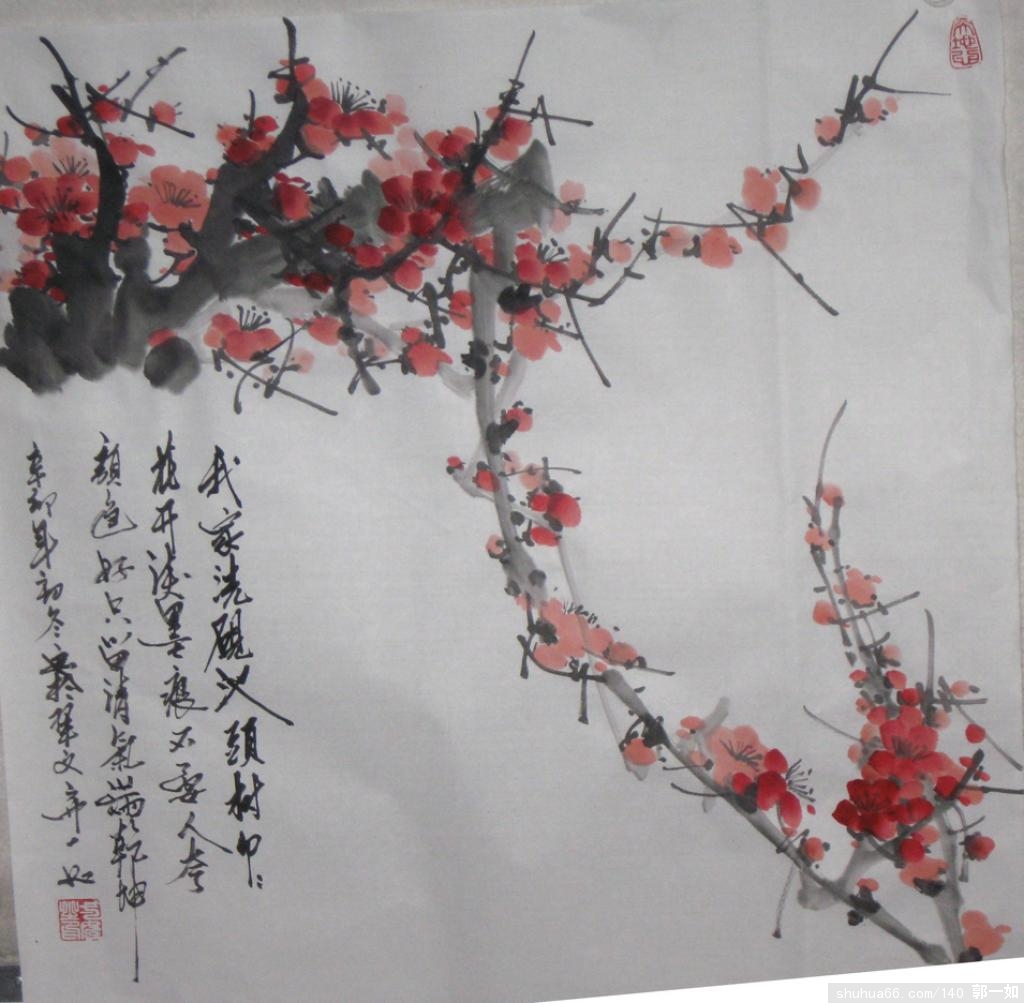 我家洗硯池頭樹个々
花开淡墨痕不要人夸
顏色好只留清氣滿乾坤
辛卯年初冬文斋一如
shuhua66.com/140 郭一如